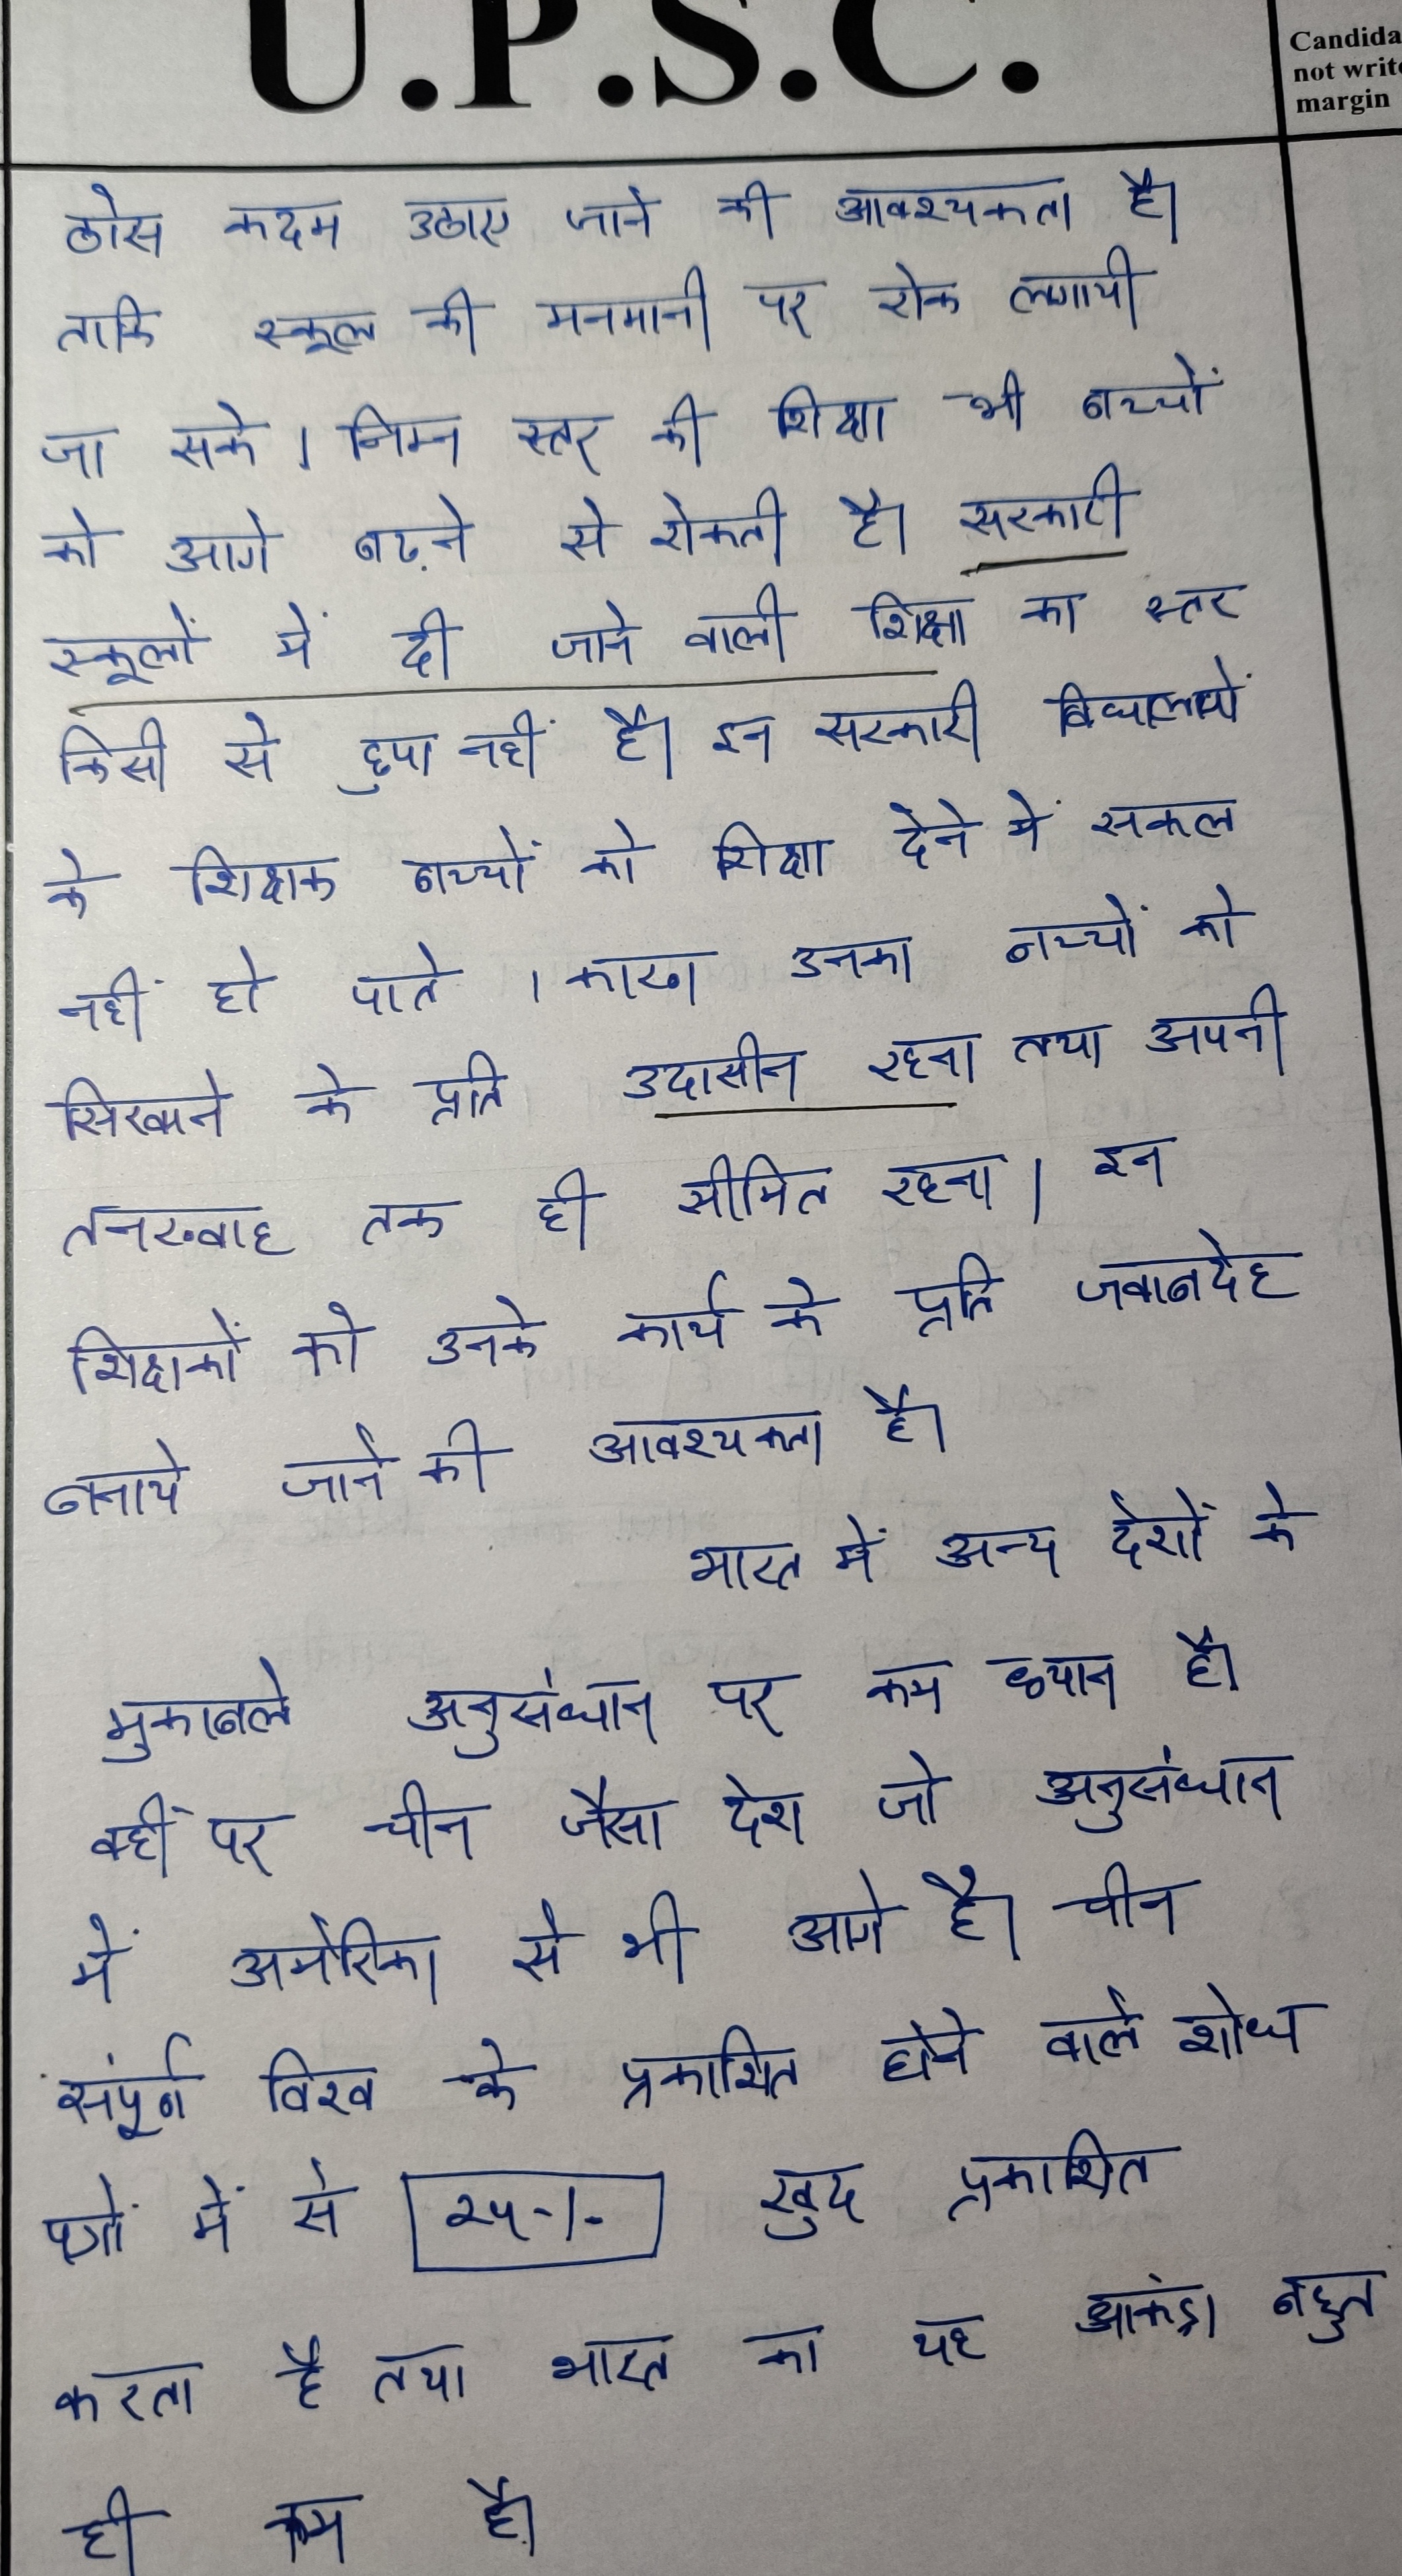 U.P.S.C.
Candida
not write
margin
ठोस कदम उठाए जाने की आवश्यकता है।
ताकि स्कूल की मनमानी पर रोक लगायी
जा सके। निम्न स्तर की शिक्षा भी बच्चों
को आगे बढ़ने से रोकती है। सरकारी
स्कूलों में दी जाने वाली शिक्षा का स्तर
किसी से छुपा नहीं है। इन सरकारी विधालयों
के शिक्षक बच्चों को शिक्षा देने में सफल
नहीं हो पाते । कारण उनका बच्चों को
सिखाने के प्रति उदासीन रहना तथा अपनी
तनख्वाह तक ही सीमित रहना। इन
शिक्षकों को उनके कार्य के प्रति जवाबदेह
बनाये जाने की आवश्यकता है।
भारत में अन्य देशों के
मुकाबले अनुसंधान पर कम ध्यान है।
वहीं पर चीन जैसा देश जो अनुसंधान
में अमेरिका से भी आगे है। चीन
संपूर्ण विश्व के प्रकाशित होने वाले शोध
पत्रों में से २५-/- खुद प्रकाशित
करता है तथा भारत का यह आकंड़ा बहुत
ही कम है।